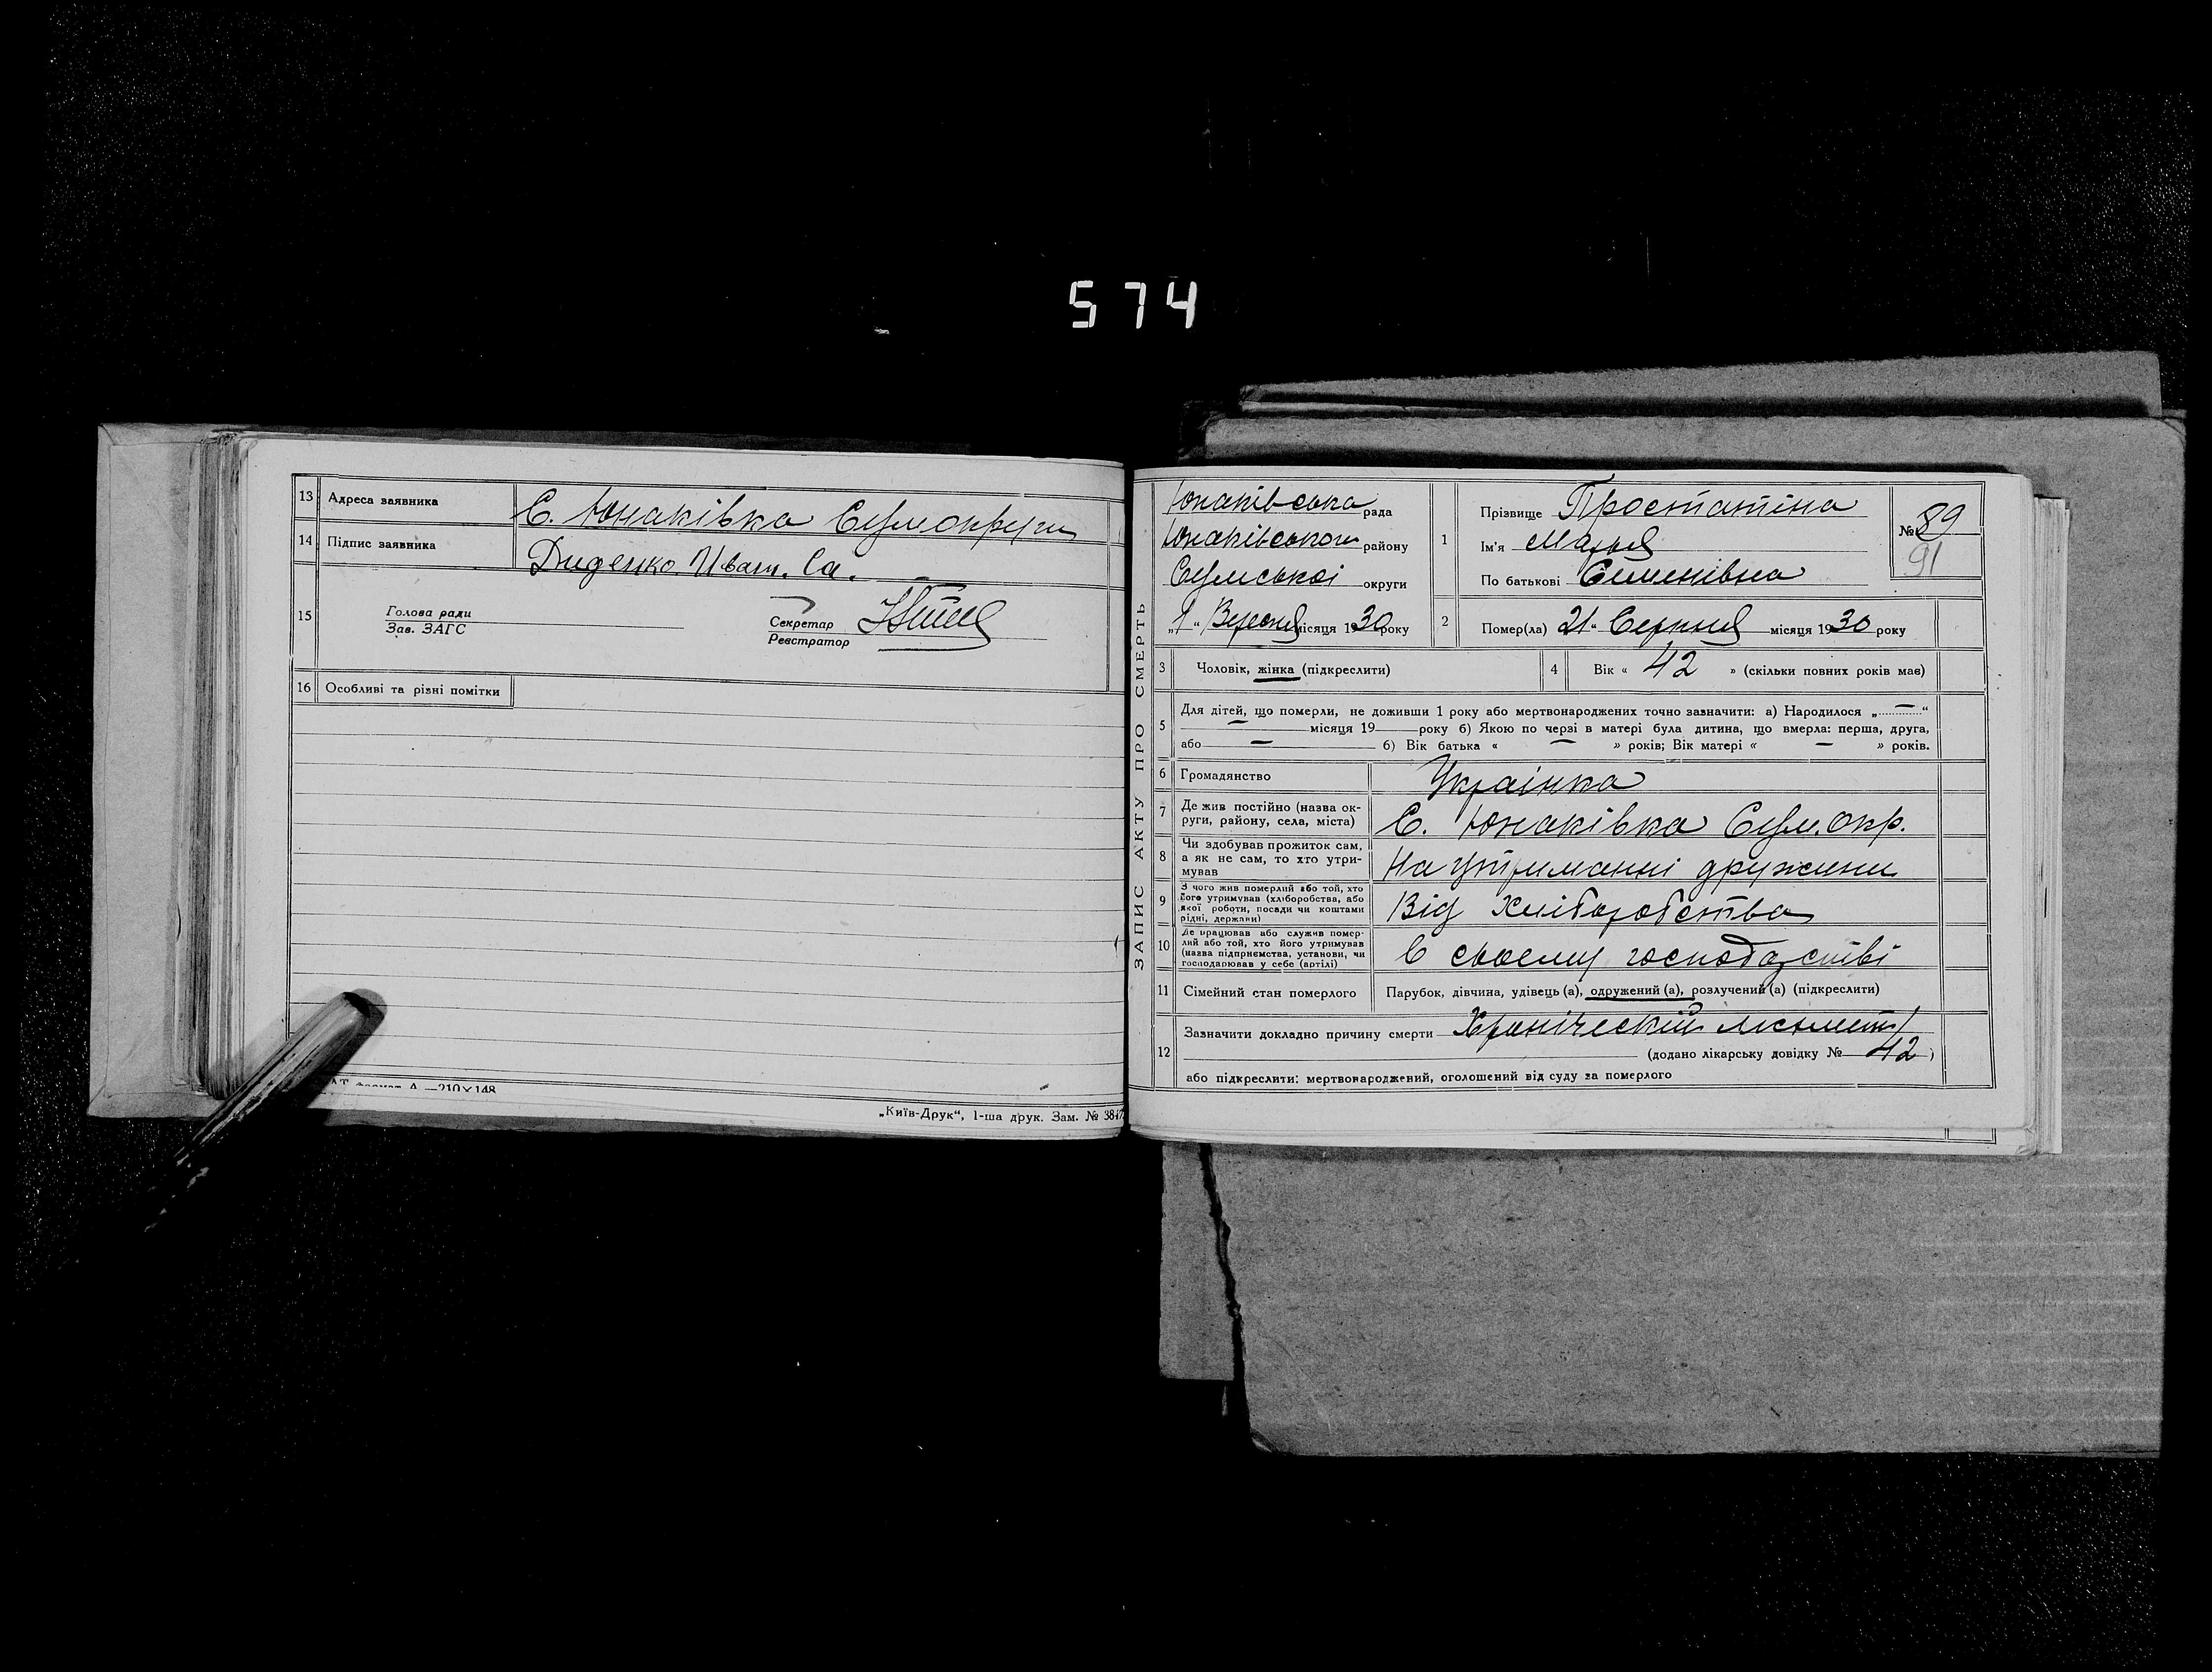 574
13 Адреса заявника С. Юнаківка Сум. округи
14 Підпис заявника Диденко Иван. Са.
15 Голова ради
Зав. ЗАГС
Секретар
Реєстратор
16 Особливі та різні помітки
АТ формат А —210×148
„Київ-Друк“, 1-ша друк. Зам. № 3847
ЗАПИС АКТУ ПРО СМЕРТЬ
Юнаківська рада
Юнаківського району
Сумської округи
„1“ Вересня місяця 1930 року
1 Прізвище Простатіна
Ім'я Марья
По батькові Семенівна
№ 89
91
2 Помер(ла) 21 “ Серпня місяця 1930 року
3 Чоловік, жінка (підкреслити)
4 Вік « 42 » (скільки повних років має)
5 Для дітей, що померли, не доживши 1 року або мертвонароджених точно зазначити: а) Народилося „ — “
— місяця 19 року б) Якою по черзі в матері була дитина, що вмерла: перша, друга,
або — б) Вік батька « — » років; Вік матері « — » років.
6 Громадянство Українка
7 Де жив постійно (назва ок-
руги, району, села, міста) С. Юнаківка Сум. окр.
8 Чи здобував прожиток сам,
а як не сам, то хто утри-
мував На утриманні дружини
9 З чого жив померлий або той, хто
його утримував (хліборобства, або
якої роботи, посади чи коштами
рідні, держави) Від хліборобства
10 Де працював або служив помер-
лий або той, хто його утримував
(назва підприємства, установи, чи
господарював у себе (артілі) В своєму господарстві
11 Сімейний стан померлого Парубок, дівчина, удівець (а), одружений (а), розлучений (а) (підкреслити)
12 Зазначити докладно причину смерти Хроніческий
(додано лікарську довідку № 42 )
або підкреслити: мертвонароджений, оголошений від суду за померлого